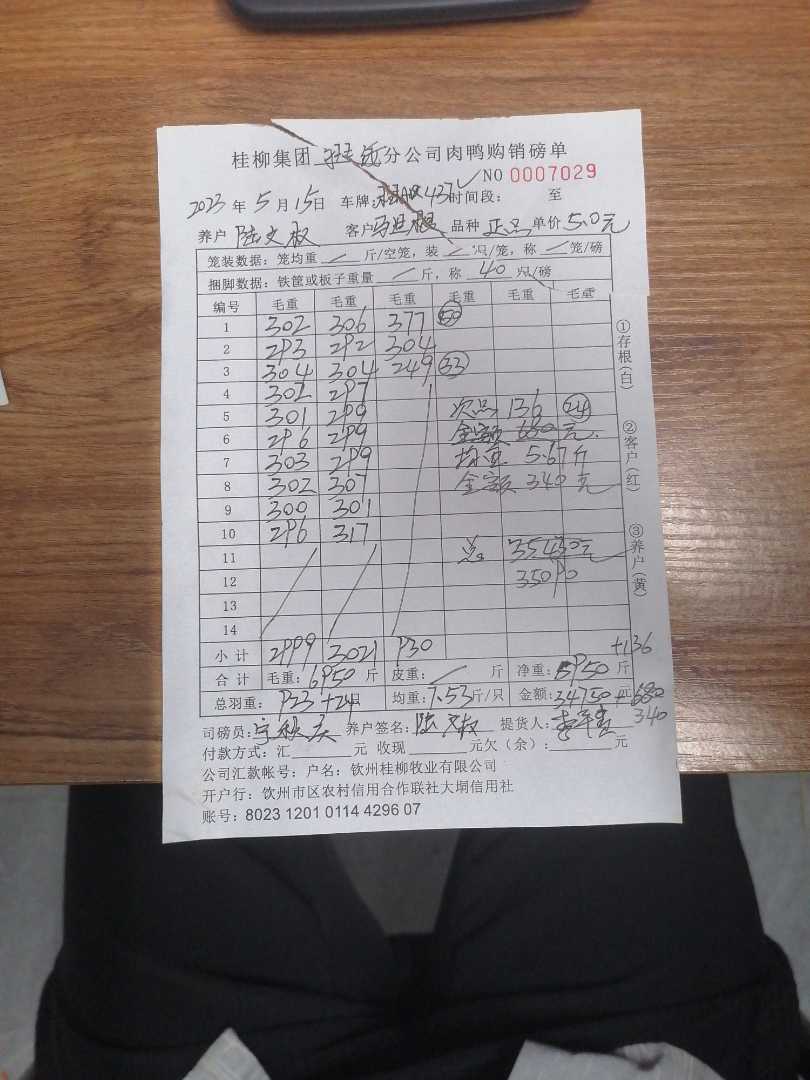 桂柳集团 分公司肉鸭购销磅单
NO 0007029
2023 年 5 月 15日 车牌: 437 时间段: 至
养户 陆文权 客户 品种 正品 单价 5.0元
笼装数据: 笼均重 / 斤/空笼, 装 / 只/笼, 称 / 笼/磅
捆脚数据: 铁筐或板子重量 / 斤, 称 40 只/磅
编号 毛重 毛重 毛重 毛重 毛重 毛重
1 302 306 377 50
2 293 292 304
3 304 304 249 33
4 302 297
5 301 299 次品 136 24
6 296 299 金额 680元.
7 303 299 均重 5.67斤
8 302 307 金额 340元
9 300 301
10 296 317
11 总 35430元
12 35090
13
14
小计 2999 3021 930 +136
合计 毛重: 6950 斤 皮重: / 斤 净重: 6950 斤
总羽重: 923+24只 均重: 7.53斤/只 金额: 34750元+680
340
司磅员: 养户签名: 陆文权 提货人:
付款方式: 汇 元 收现 元欠(余): 元
公司汇款帐号: 户名: 钦州桂柳牧业有限公司
开户行: 钦州市区农村信用合作联社大垌信用社
账号: 8023 1201 0114 4296 07
①存根(白)
②客户(红)
③养户(黄)